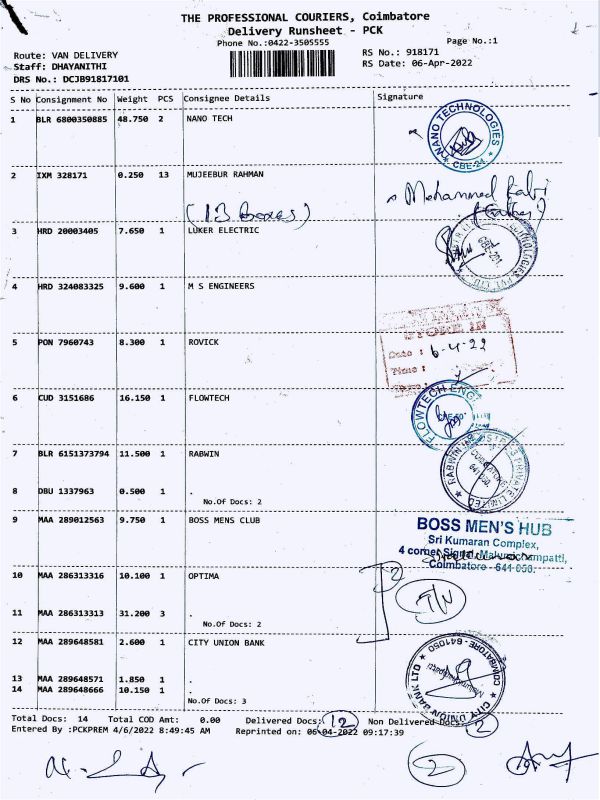 THE PROFESSIONAL COURIERS, Coimbatore
Delivery Runsheet - PCK
Phone No.:0422-3505555
Page No.:1
Route: VAN DELIVERY
RS No.: 918171
Staff: DHAYANITHI
RS Date: 06-Apr-2022
DRS No.: DCJB91817101
S No Consignment No Weight PCS Consignee Details Signature
1 BLR 6800350885 48.750 2 NANO TECH
NANO TECHNOLOGIES
CBE-24
2 IXM 328171 0.250 13 MUJEEBUR RAHMAN
(13 Boxes)
Mohammed
3 HRD 20003405 7.650 1 LUKER ELECTRIC
TECHNOLOGIES PVT LTD.
4 HRD 324083325 9.600 1 M S ENGINEERS
5 PON 7960743 8.300 1 ROVICK
STORE IN
Date : 6-4-22
Time :
6 CUD 3151686 16.150 1 FLOWTECH
FLOWTECH ENG
7 BLR 6151373794 11.500 1 RABWIN
RABWIN INDUSTRIES PRIVATE LIMITED
COIMBATORE
641 050.
8 DBU 1337963 0.500 1 .
No.Of Docs: 2
9 MAA 289012563 9.750 1 BOSS MENS CLUB
BOSS MEN'S HUB
Sri Kumaran Complex,
4 corner Signal, Malumichampatti,
Coimbatore - 641 050.
10 MAA 286313316 10.100 1 OPTIMA
2
11 MAA 286313313 31.200 3 .
No.Of Docs: 2
12 MAA 289648581 2.600 1 CITY UNION BANK
CITY UNION BANK LTD
COIMBATORE - 641050
13 MAA 289648571 1.850 1 .
14 MAA 289648666 10.150 1
No.Of Docs: 3
Total Docs: 14 Total COD Amt: 0.00 Delivered Docs: 12 Non Delivered Docs: 2
Entered By :PCKPREM 4/6/2022 8:49:45 AM Reprinted on: 06-04-2022 09:17:39
2